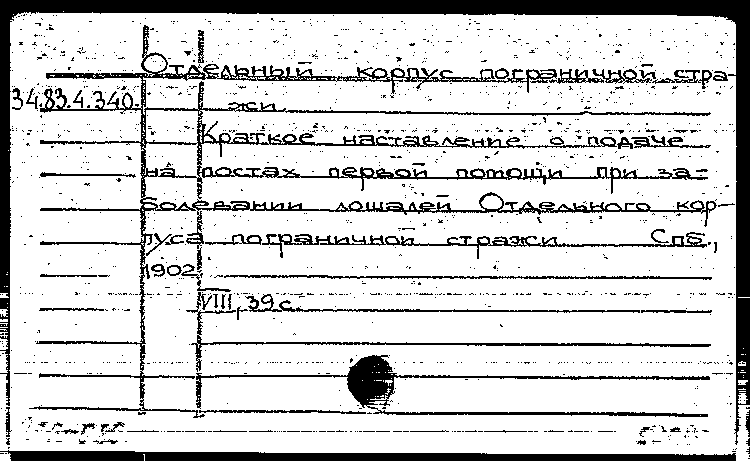 Отдельный корпус пограничной стра-
34.83.4.340. жи.
Краткое наставление о подаче
на постах первой помощи при за-
болевании лошадей Отдельного кор-
пуса пограничной стражи. Спб.,
1902.
VIII, 39 с.